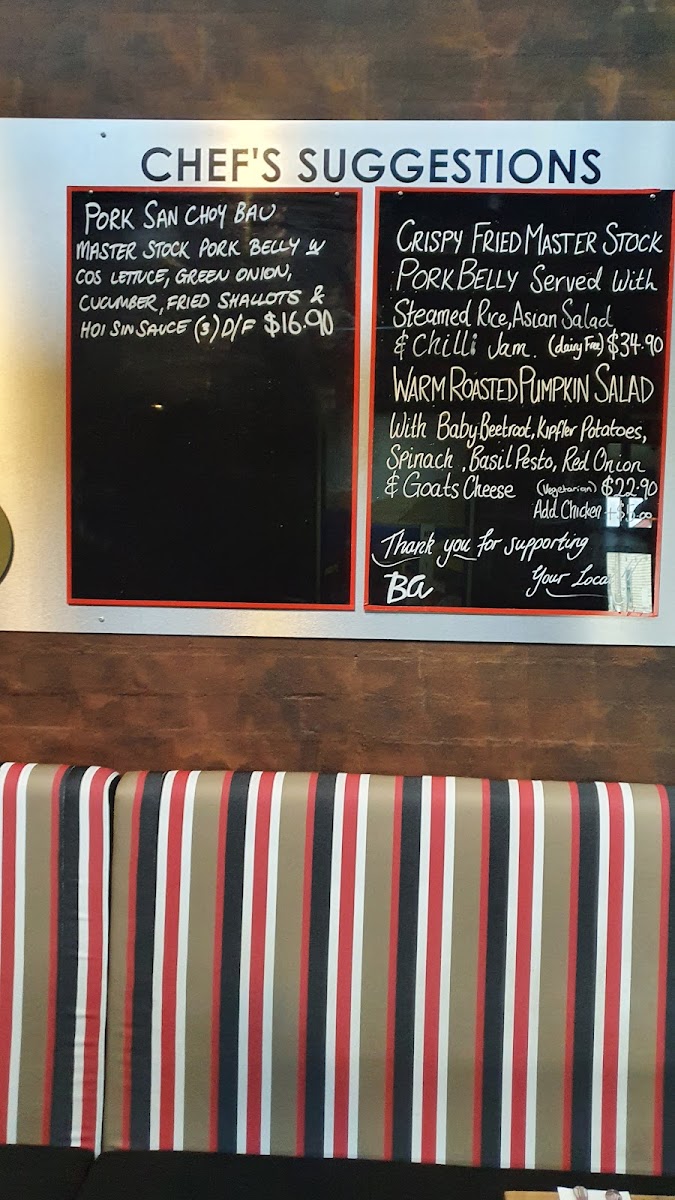 CHEF'S SUGGESTIONS
PORK SAN CHOY BAU
MASTER STOCK PORK BELLY W
COS LETTUCE, GREEN ONION,
CUCUMBER, FRIED SHALLOTS &
HOI SIN SAUCE (3) D/F $16.90
CRISPY FRIED MASTER STOCK
PORK BELLY Served With
Steamed Rice, Asian Salad
& Chilli Jam. (dairy Free) $34.90
WARM ROASTED PUMPKIN SALAD
With Baby Beetroot, Kipfler Potatoes,
Spinach, Basil Pesto, Red Onion
& Goats Cheese (Vegetarian) $22.90
Add Chicken
Thank you for supporting
Your Local